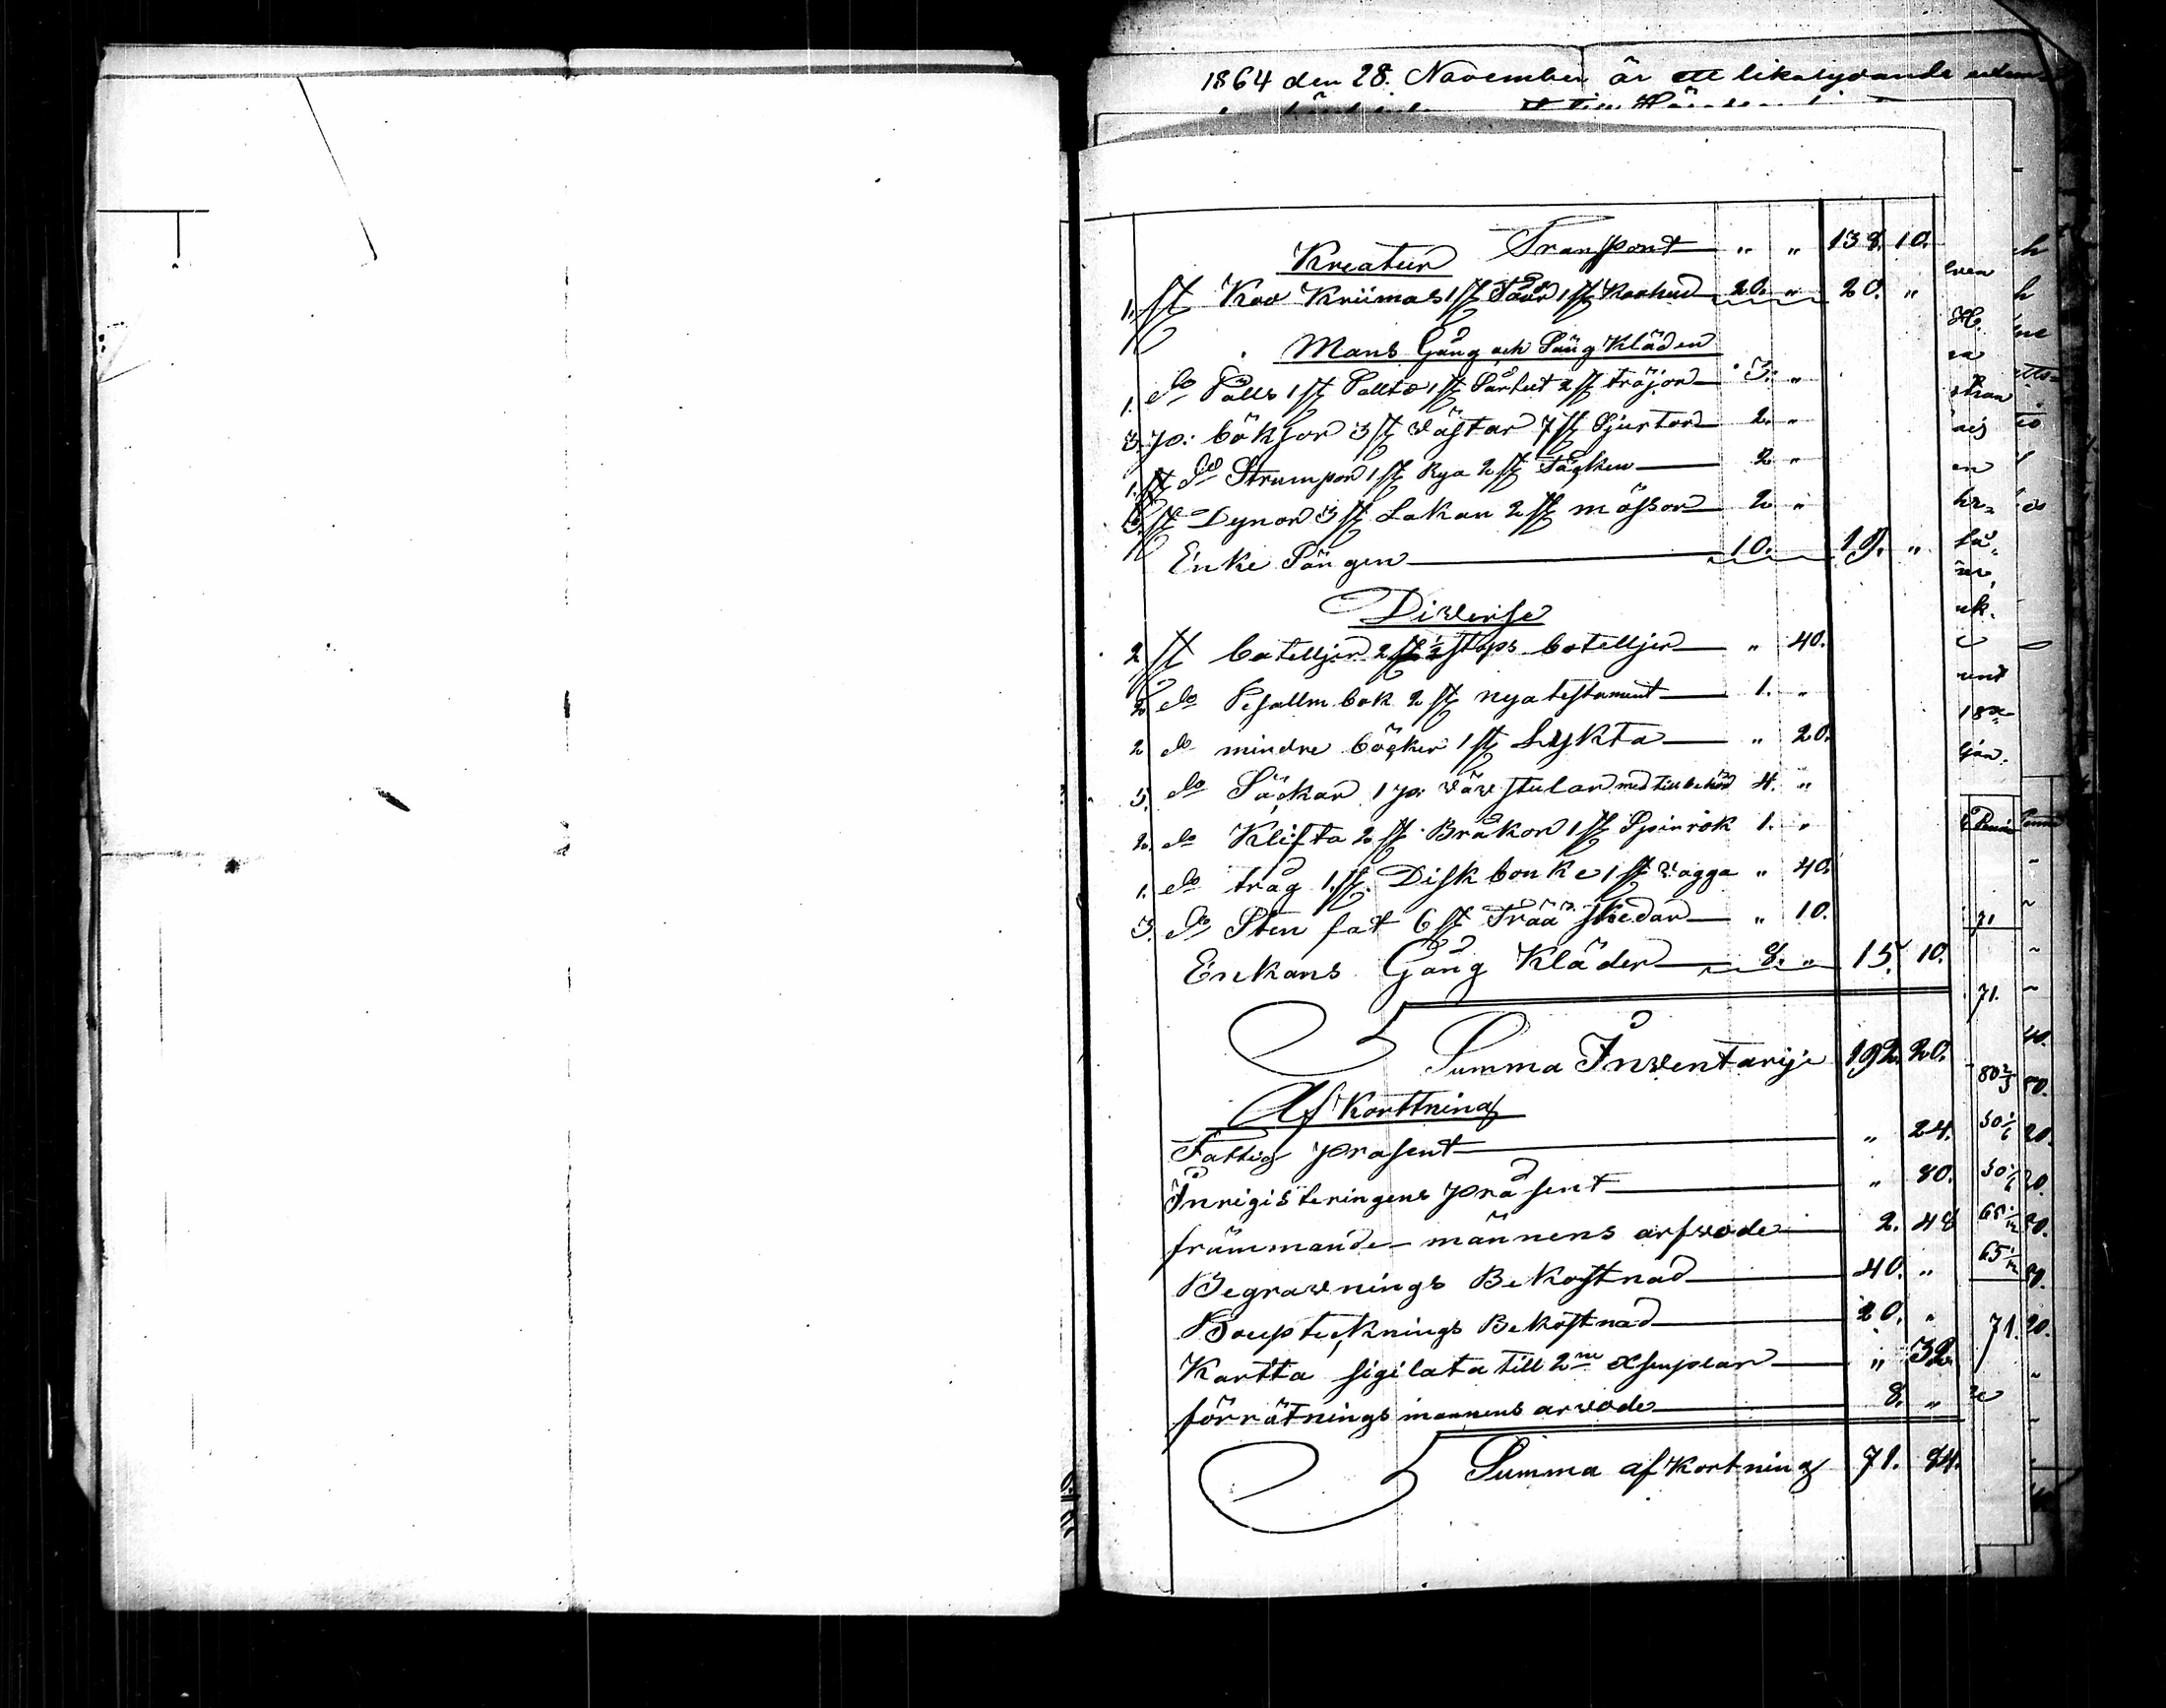 1864 den 28. November är ett likalydande
Transport " " 138. 10.
Kreatur
1. st Koo Kriimas 1 st Tådr 1 st Koohud 20. " 20. "
Mans Gång och Säng Kläden
1. do Palls 1 st Palltå 1 st Sürtut 2 st tröjor 3. "
3. p: böksor 3 st Västar 7 st Sjurtor 2. "
1. st do Strumpor 1 st Rya 2 st Täcken 2 "
6. st Dynor 3 st Lakan 2 st mössor 2 "
Enke Sängen 10. 19. "
Diverse
2 st botelljer 2 st ½ stops botelljer " 40.
2 do Pesallm bok 2 st nya testament 1. "
2 do mindre böcker 1 st Lykta " 20.
5. do Säckar 1 p: väv stular med tillbehör 4. "
2. do Klifta 2 st Bråkor 1 st Spinrok 1. "
1. do tråg 1. st. Disk bonke 1 st vagga " 40.
3. do Sten fat 6 st Trää skedar " 10.
Enkans Gång Kläder 8. " 15. 10.
Summa Inventarije 192. 20.
Af Korttning
Fattig prasent " 24.
Inrigisteringens präsent " 80.
främmande männens arfvode 2. 48
Begravnings Bekostnad 40. "
Boupteknings Bekostnad 20. "
Kartta sigilata till 2ne exsemplar " 32
förrätnings mannens arvode 8. "
Summa afkortning 71. 84.